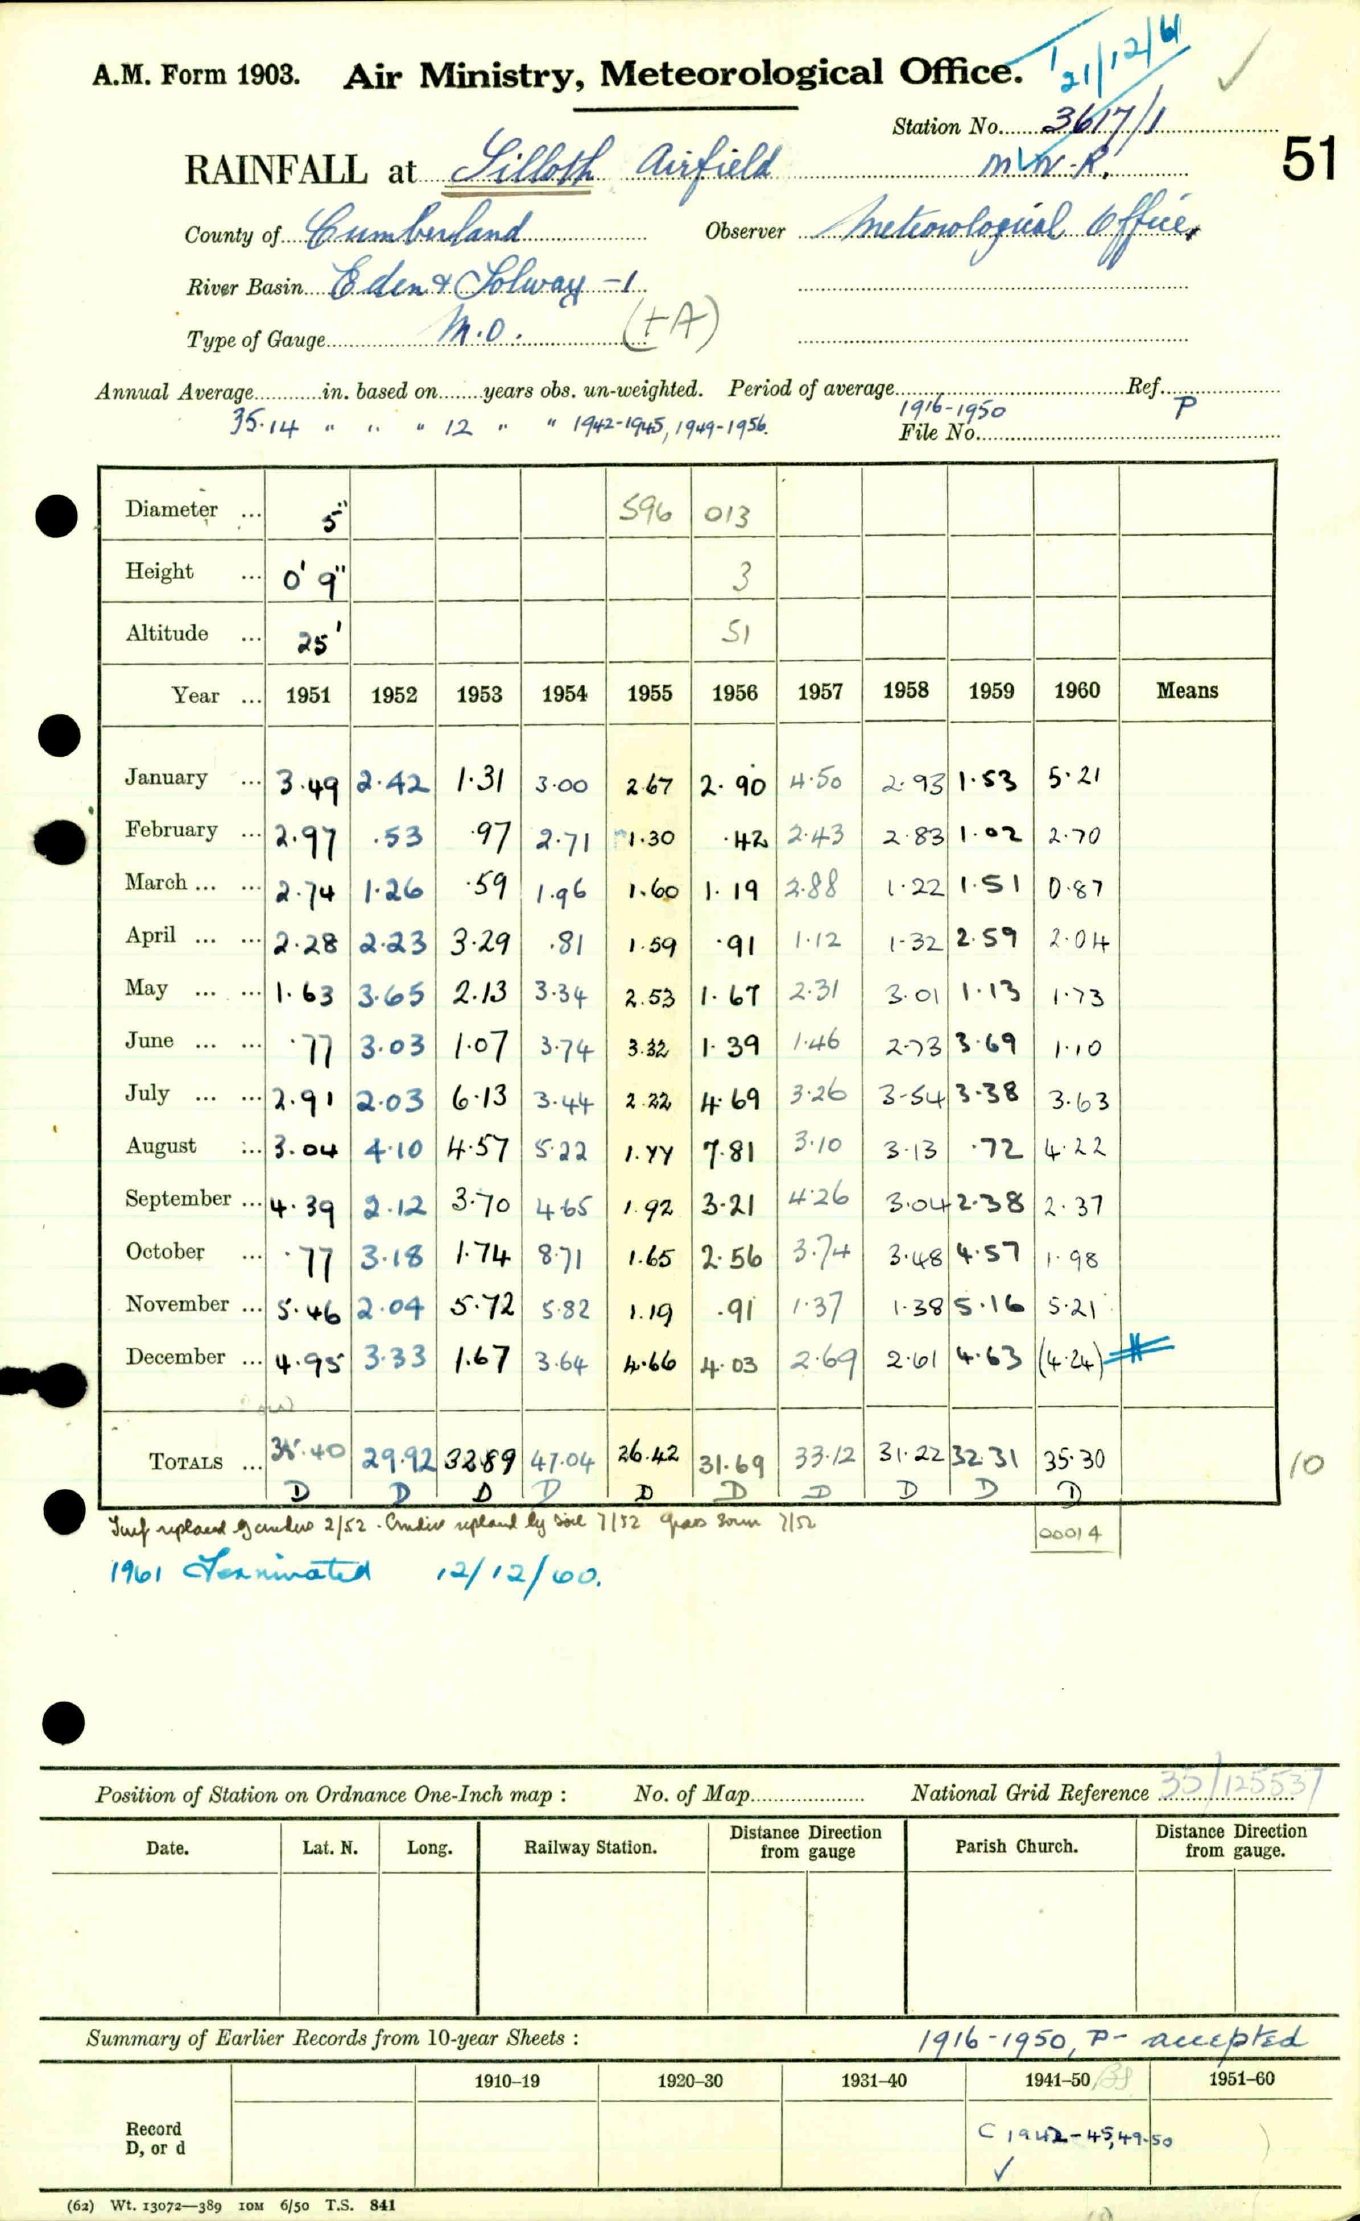 A.M. Form 1903. Air Ministry, Meteorological Office. 21/12/61
Station No. 3617/1
RAINFALL at Silloth Airfield M W.R. 51
County of Cumberland Observer Meteorological Office,
River Basin Eden & Solway -1
Type of Gauge M.O. (+A)
Annual Average in. based on years obs. un-weighted. Period of average 1916-1950 Ref. P
35.14 " " " 12 " " 1942-1945, 1949-1956. File No.
Diameter ... 5" 596 013
Height ... 0' 9" 3
Altitude ... 25' 51
Year ... 1951 1952 1953 1954 1955 1956 1957 1958 1959 1960 Means
January ... 3.49 2.42 1.31 3.00 2.67 2.90 4.50 2.93 1.53 5.21
February ... 2.97 .53 .97 2.71 1.30 .42 2.43 2.83 1.02 2.70
March ... ... 2.74 1.26 .59 1.96 1.60 1.19 2.88 1.22 1.51 0.87
April ... ... 2.28 2.23 3.29 .81 1.59 .91 1.12 1.32 2.59 2.04
May ... ... 1.63 3.65 2.13 3.34 2.53 1.67 2.31 3.01 1.13 1.73
June ... ... .77 3.03 1.07 3.74 3.32 1.39 1.46 2.73 3.69 1.10
July ... ... 2.91 2.03 6.13 3.44 2.22 4.69 3.26 3.54 3.38 3.63
August ... 3.04 4.10 4.57 5.22 1.77 7.81 3.10 3.13 .72 4.22
September ... 4.39 2.12 3.70 4.65 1.92 3.21 4.26 3.04 2.38 2.37
October ... .77 3.18 1.74 8.71 1.65 2.56 3.74 3.48 4.57 1.98
November ... 5.46 2.04 5.72 5.82 1.19 .91 1.37 1.38 5.16 5.21
December ... 4.95 3.33 1.67 3.64 4.66 4.03 2.69 2.61 4.63 (4.24)
TOTALS ... 35.40 29.92 32.89 47.04 26.42 31.69 33.12 31.22 32.31 35.30 10
D D D D D D D D D D
Turf replaced by cinders 2/52. Cinders replaced by soil 7/52 grass sown 7/52
00014
1961 Terminated 12/12/60.
Position of Station on Ordnance One-Inch map : No. of Map National Grid Reference 35/125537
Date. Lat. N. Long. Railway Station. Distance Direction from gauge Parish Church. Distance Direction from gauge.
Summary of Earlier Records from 10-year Sheets : 1916-1950, P- accepted
1910–19 1920–30 1931–40 1941–50 1951–60
Record
D, or d
C 1942-45, 49-50
(62) Wt. 13072—389 10M 6/50 T.S. 841